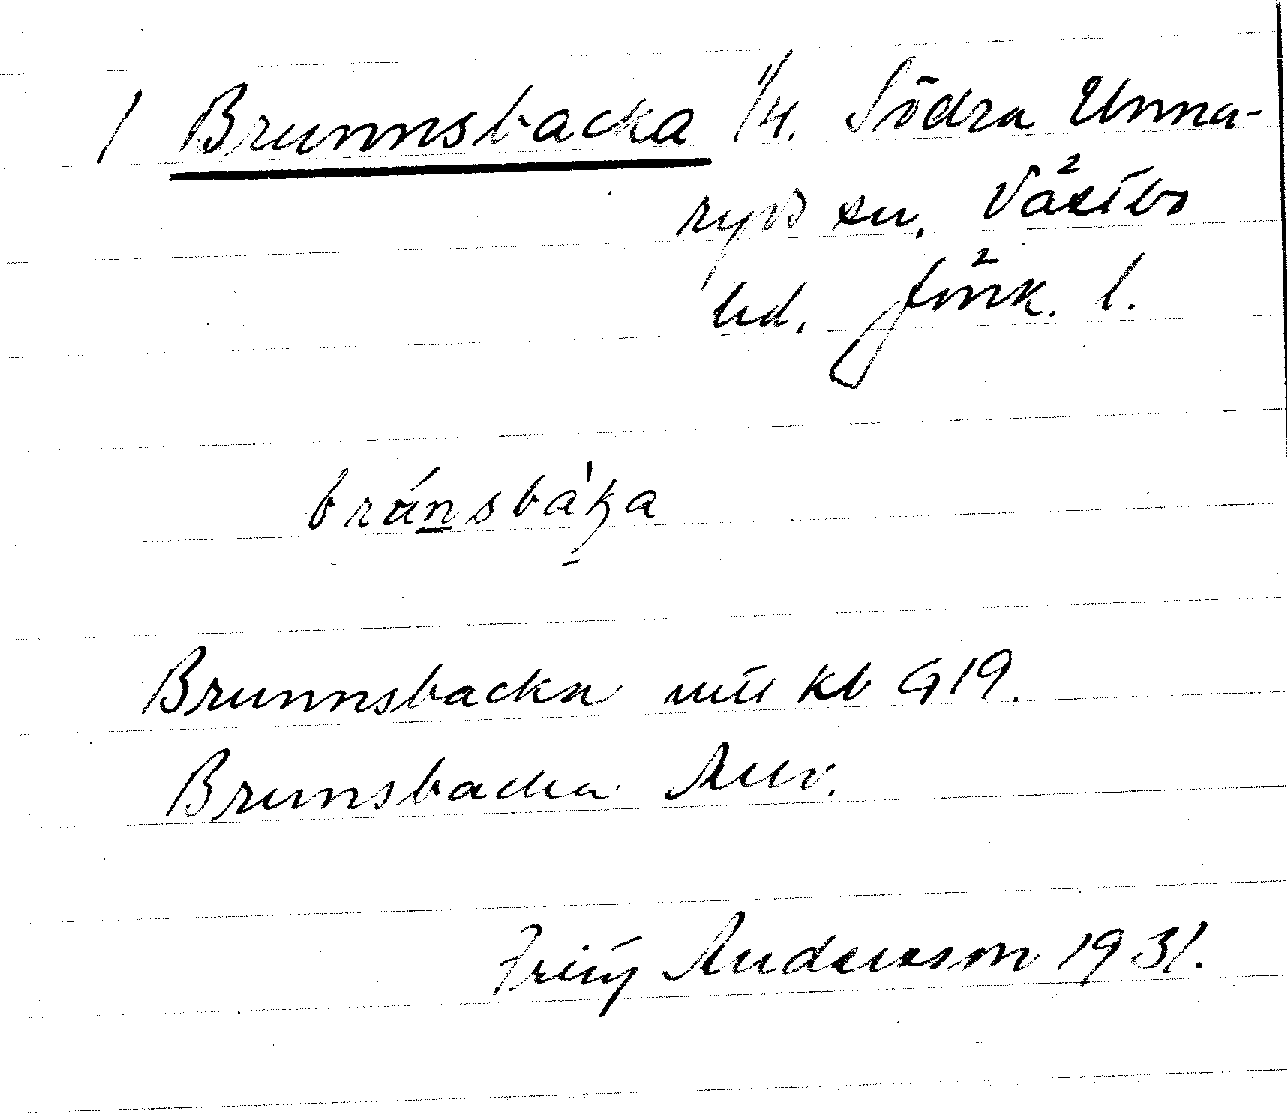 1 Brunnsbacka 1/4. Södra Unna-
ryds sn. Västbo
hd. Jönk. l.
bránsbáka
Brunnsbacka utt kb G19.
Brunsbacka
Andersson 1931.